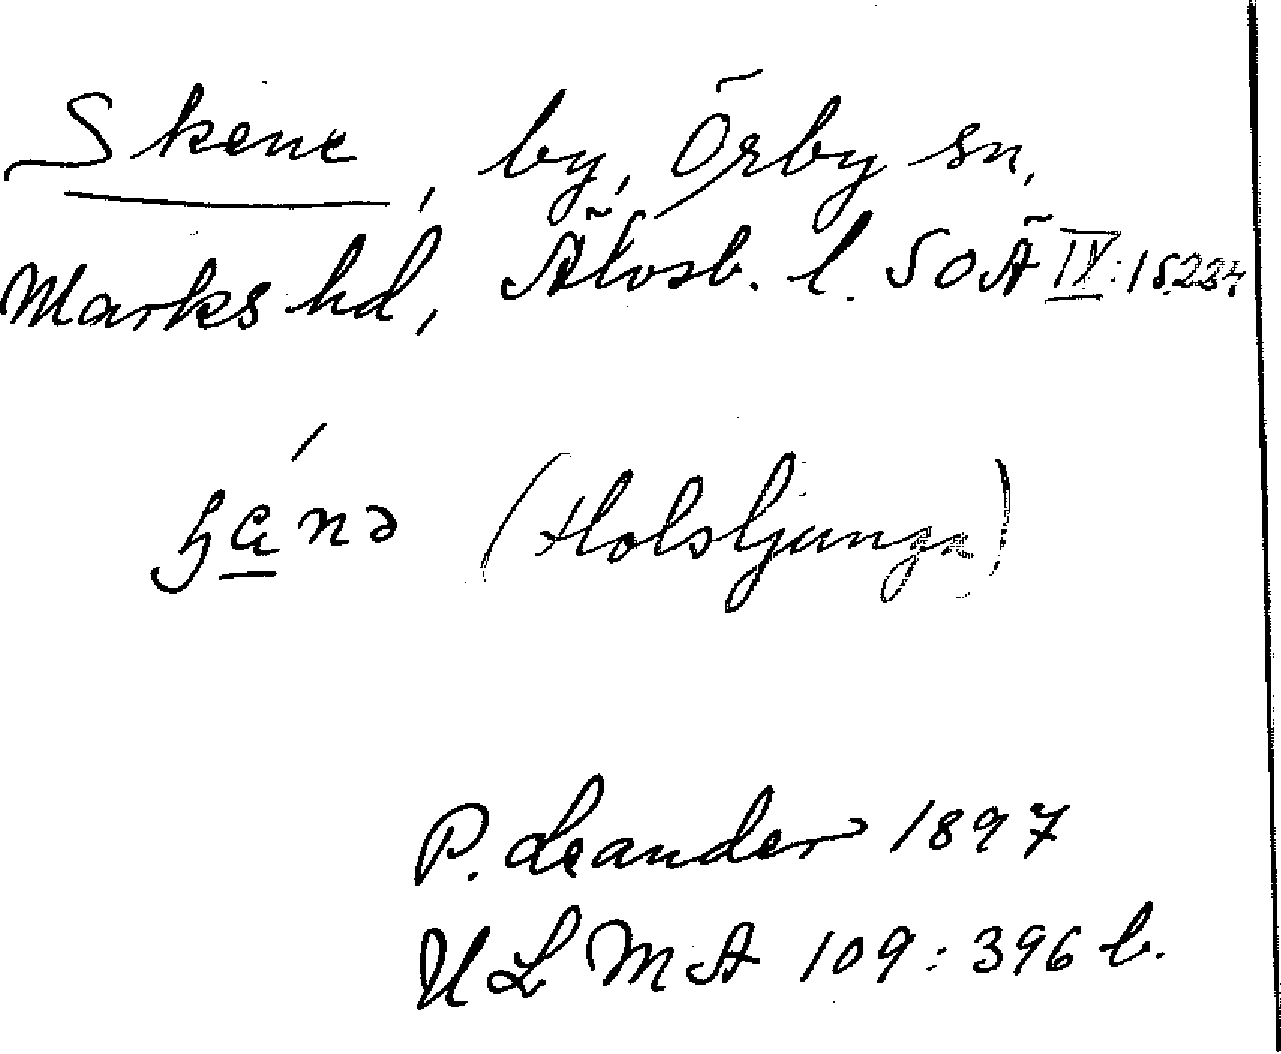 Skene, by, Örby sn,
Marks hd, Älvsb. l. SOÄ IX:1 s.224.
(Holsljunga)
P. Leander 1897
ULMA 109:396 b.